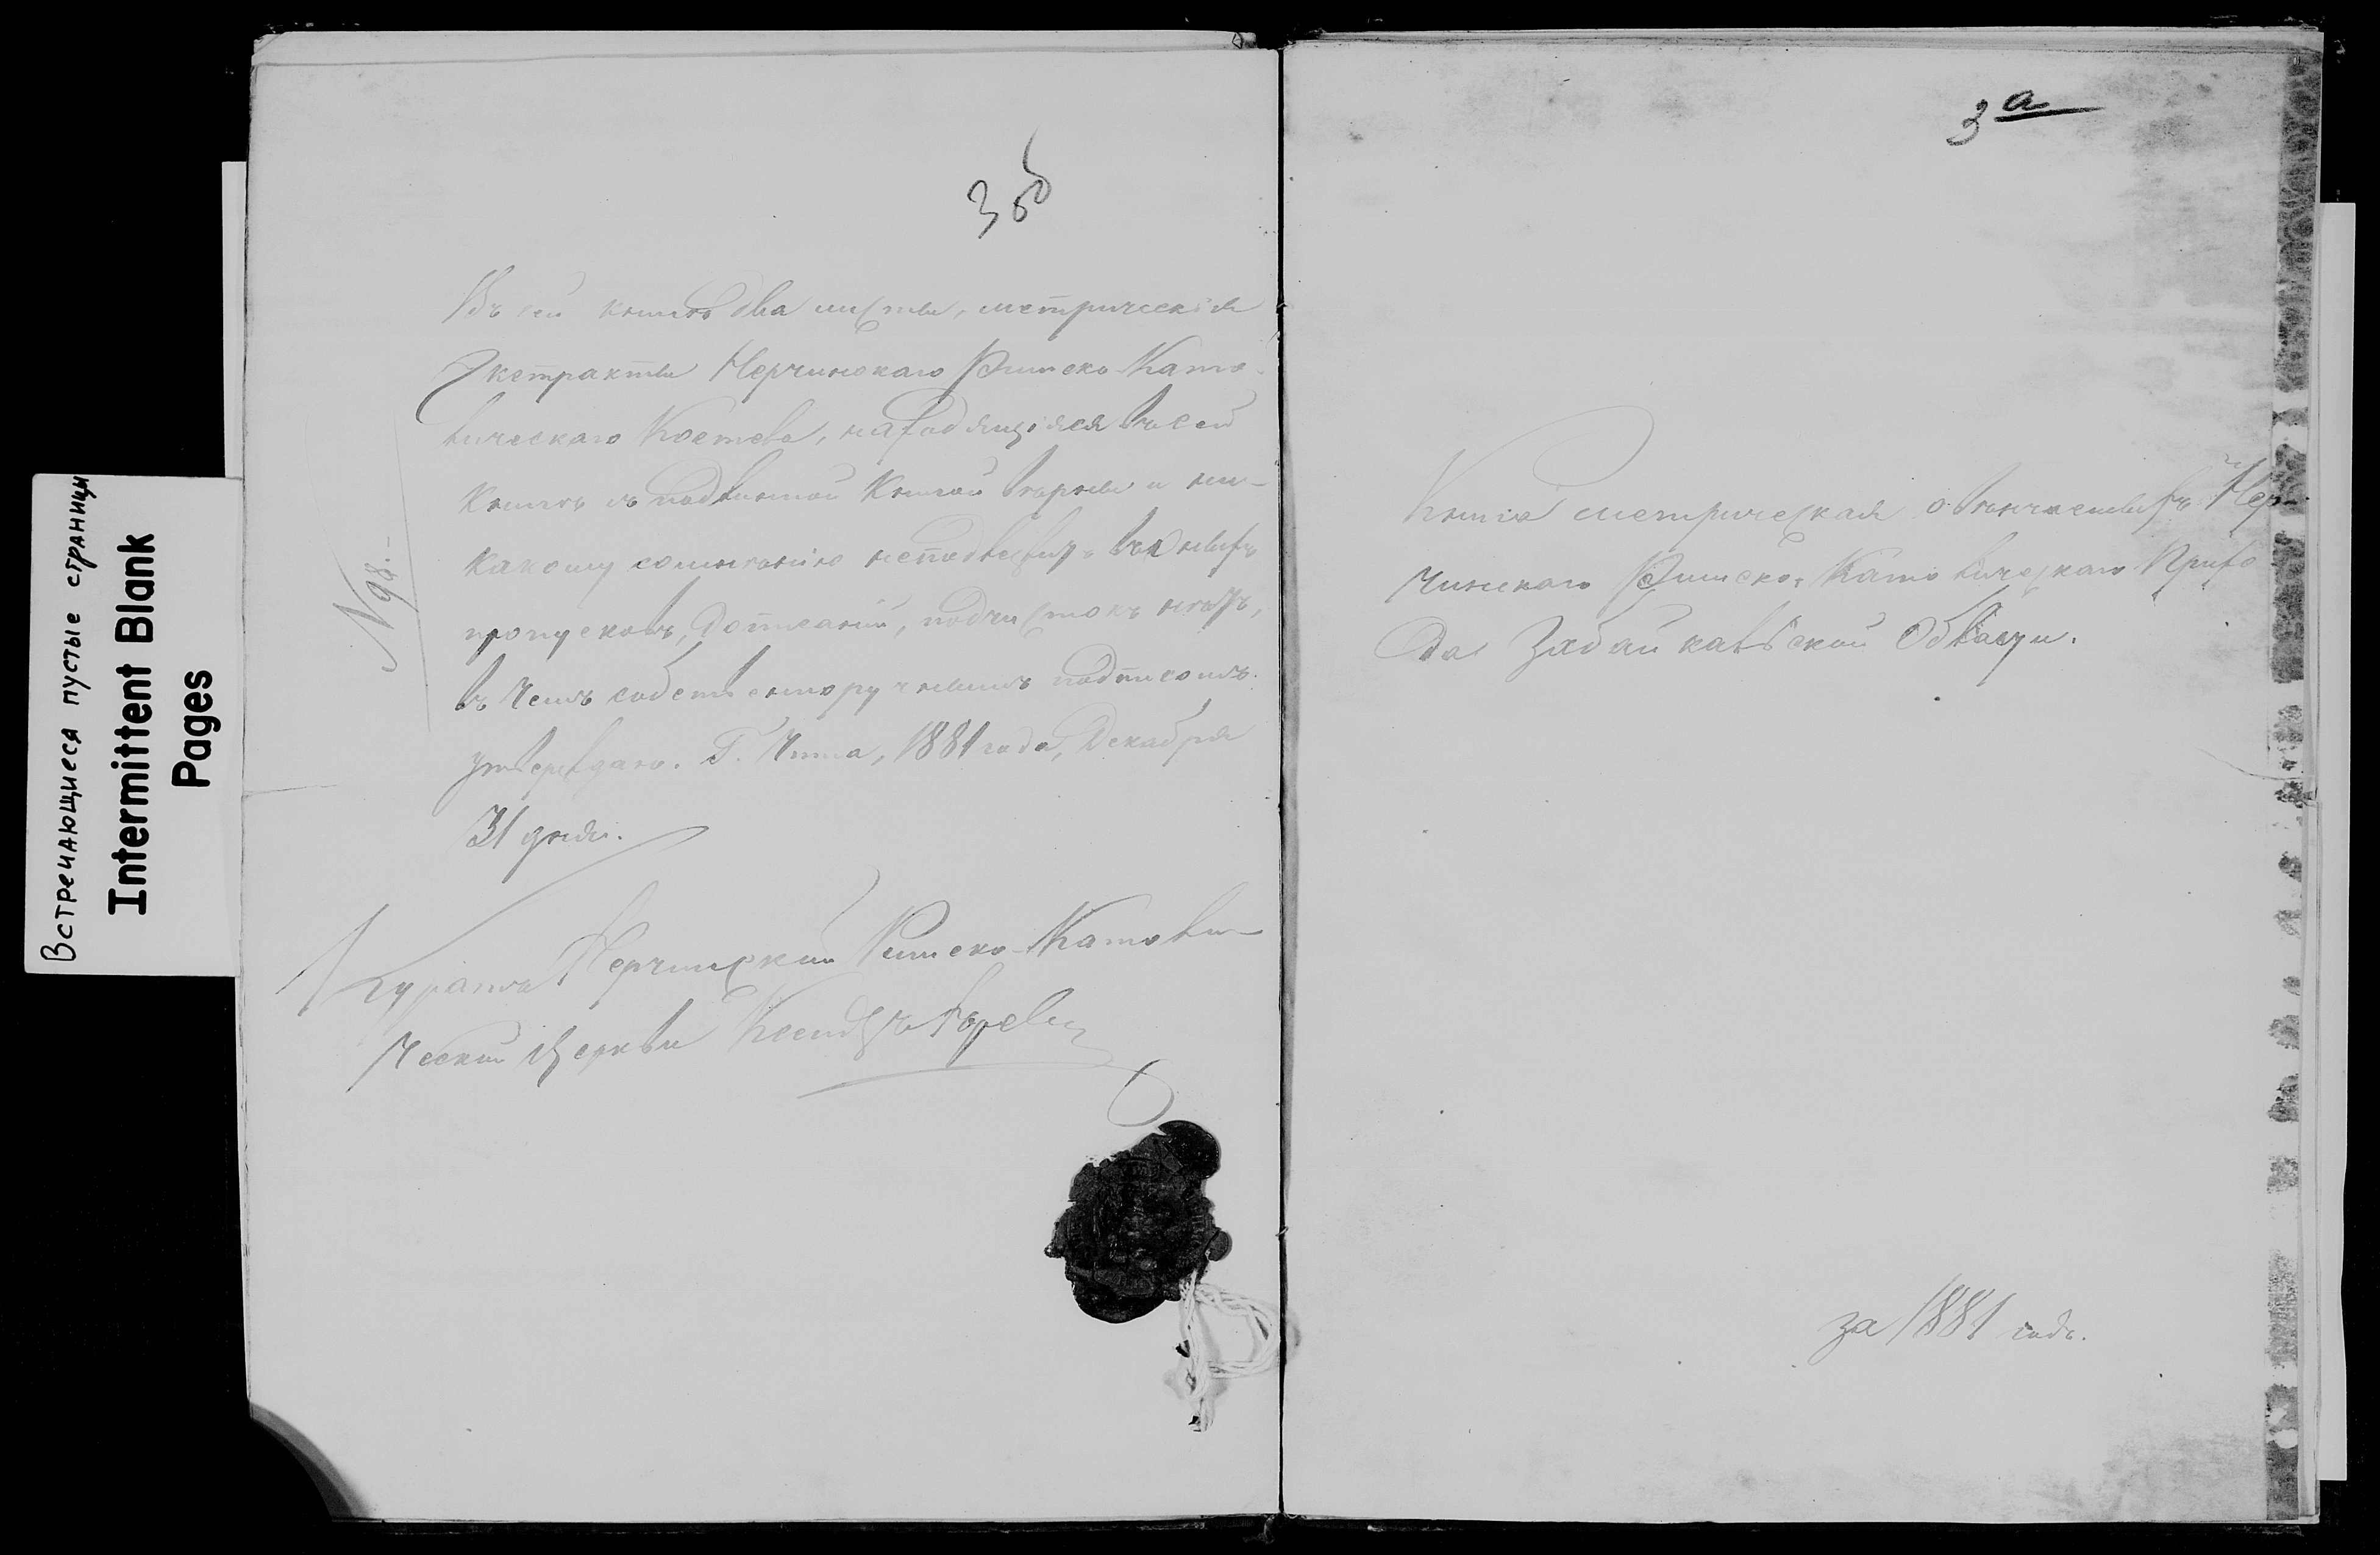 Встречающиеся пустые страницы
Intermittent Blank
Pages
3 об
Въ сей книгѣ два листы, метрическія
Экстракты Нерчинскаго Римско-Като-
лическаго Костела, находящіяся въ сей
Книгѣ съ подлинной Книгой вѣрны и ни-
какому сомнѣнію неподлежатъ, въ оныхъ
пропусковъ, дописаній, подчистокъ нѣтъ,
въ чемъ собственноручнымъ подписомъ
утверждаю. Г. Чита, 1881 года, Декабря
31 дня.
N 98.-
Куратъ Нерчинской Римско-Католи-
ческой Церкви Ксендзъ
3 а
Книга метрическая о бракосочетавшихъ Нер-
чинскаго Римско-Католическаго Прихо
да Забайкальской Области.
за 1881 годъ.